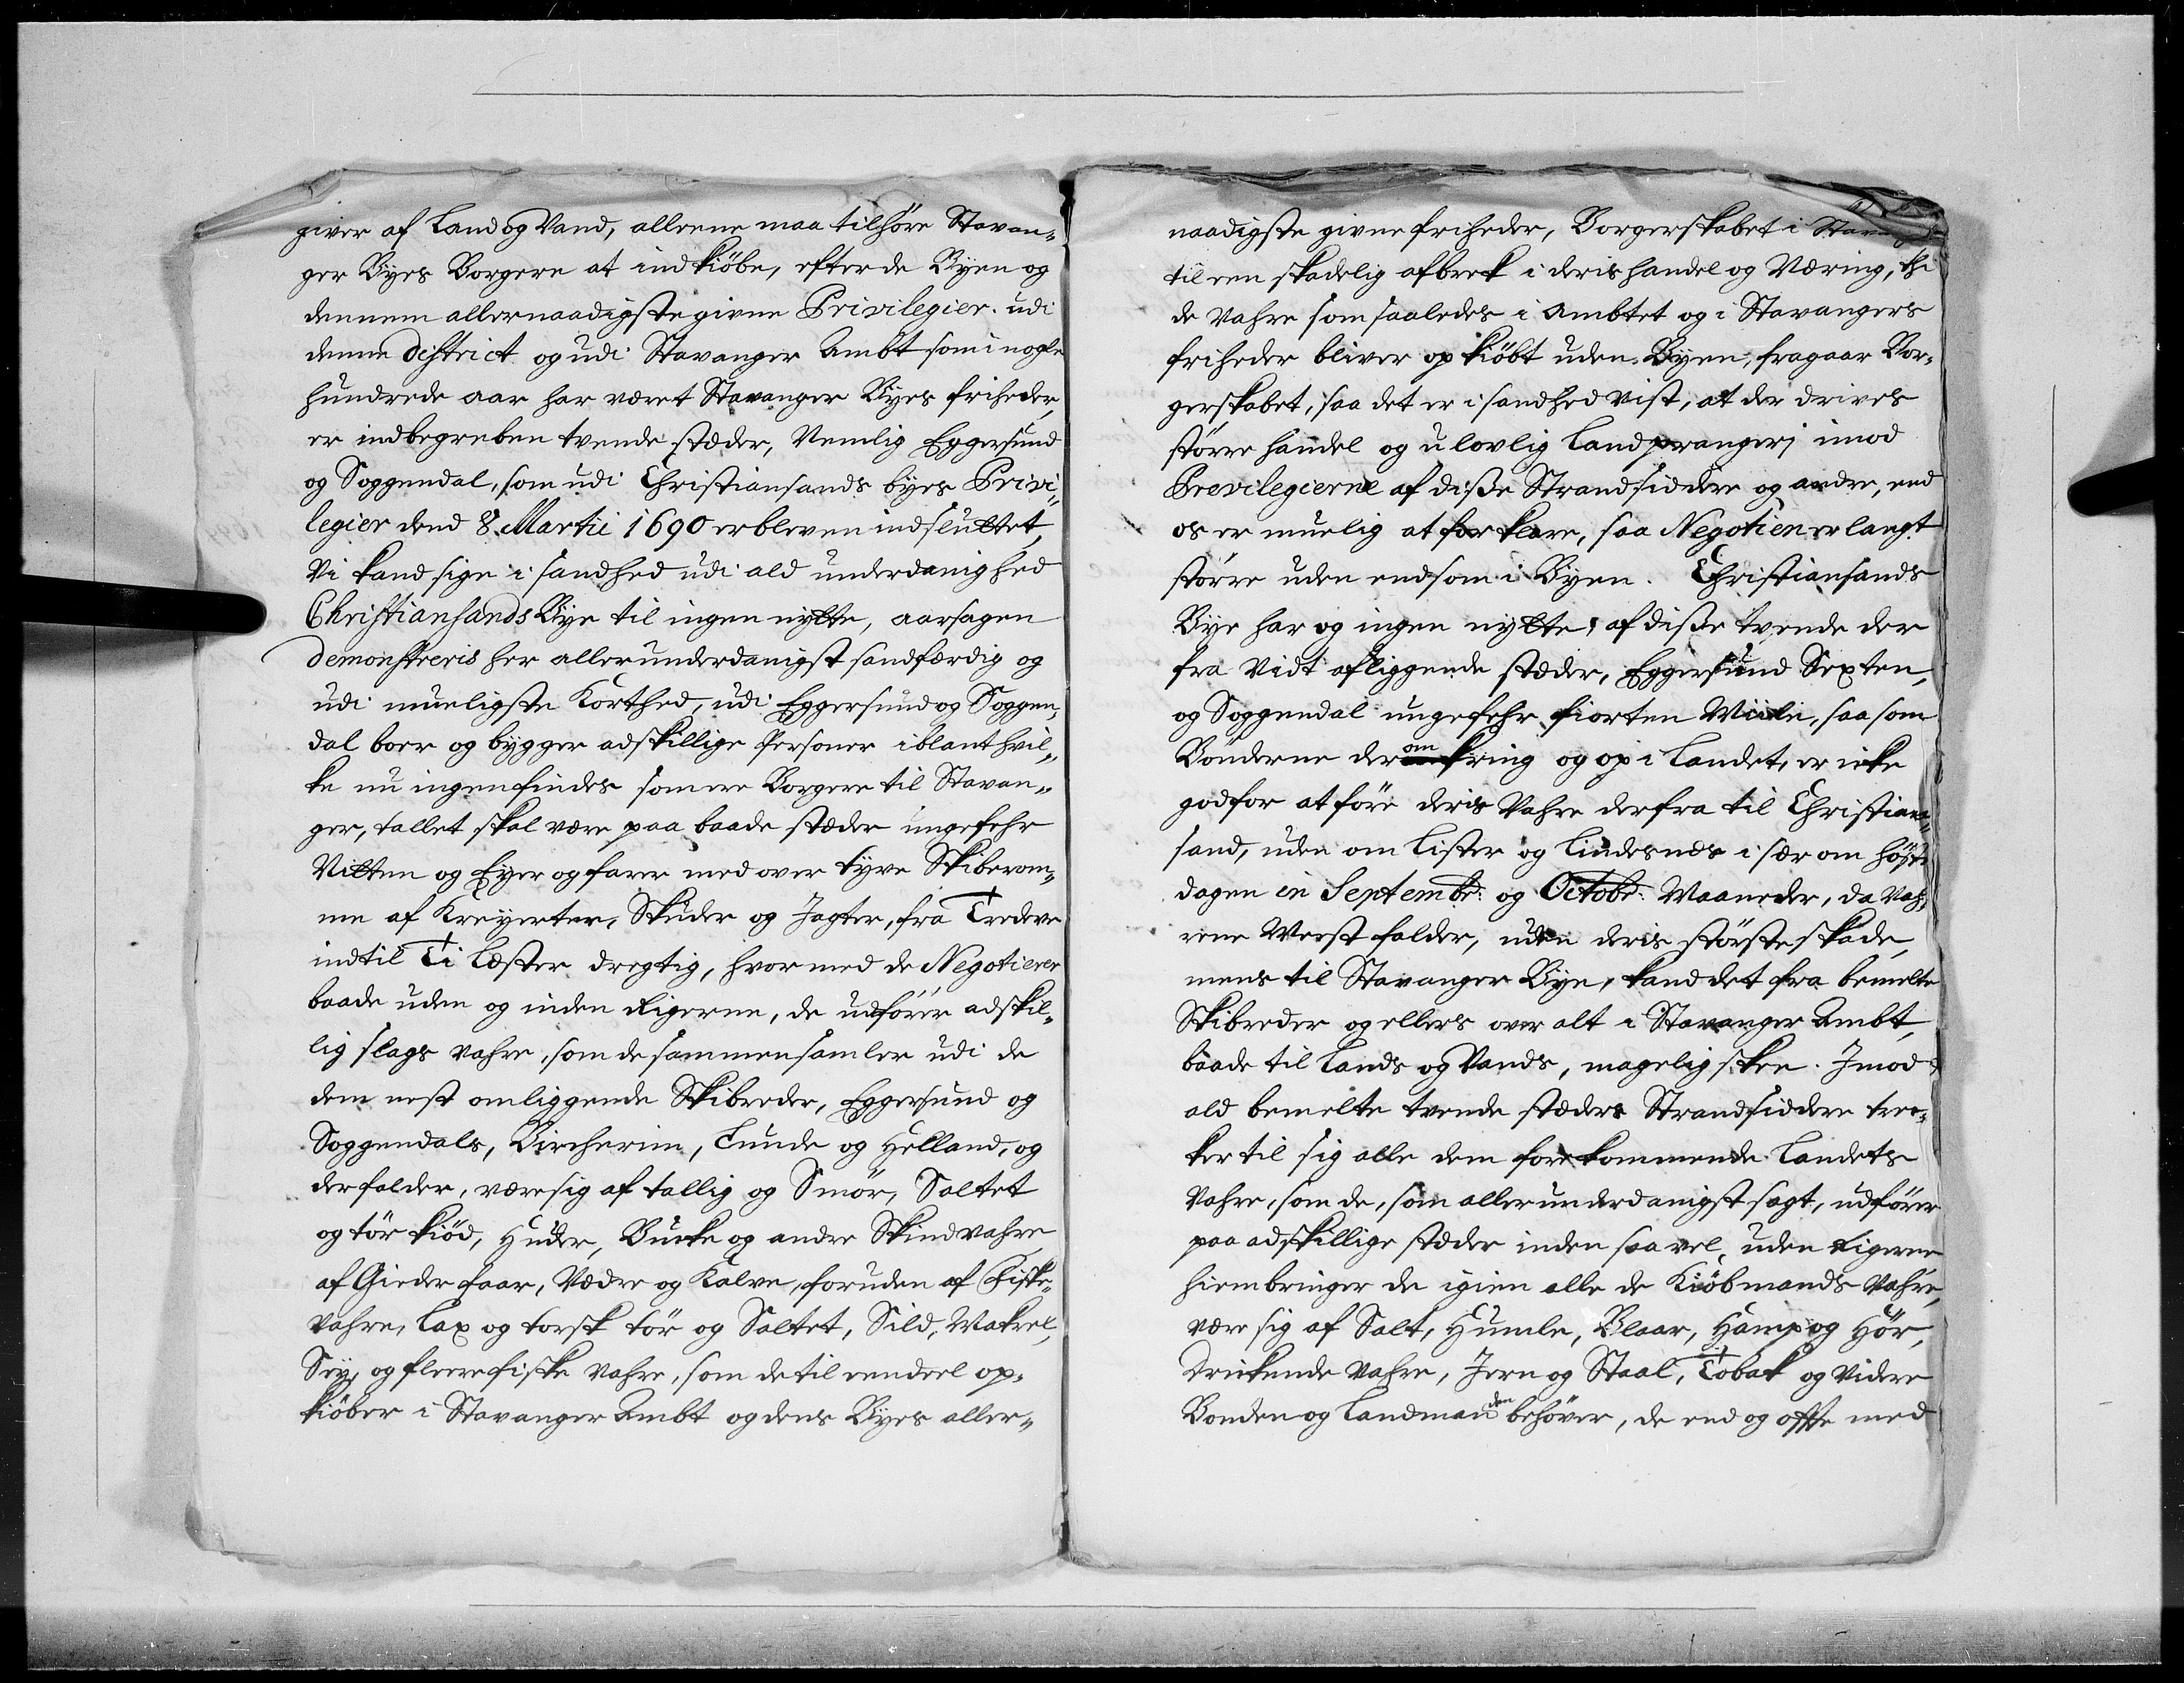 giver af Land og Vand, alleene maa tilhöre Stavan„
ger Byes Borgere at indkiöbe, efter de Byen og
dennem allernaadigste givne Privilegier. udi
denne district og udi Stavanger Ambt som i nogle
hundrede aar har været Stavanger Byes friheder,
er indbegreben tvende stæder, Nemlig Eggersund
og Soggendal, som udi Christiansands byes Privi„
legier dend 8. Martii 1690 er bleven indsluttet,
Vi kand sige i sandhed udi ald underdanighed
Christiansands Bye til ingen nytte, aarsagen
demonstreris her allerunderdanigst sandfærdig og
udi mueligste Korthed, udi Eggersund og Soggen„
dal boer og bygger adskillige Personer iblant hvil„
ke nu ingen findes som ere Borgere til Stavan„
ger, tallet skal være paa baade stæder ungefehr
Nitten og Eyer og farer med over tyve Skiberom„
me af Kreyerter, Skuder og Jagter, fra Tredeve
indtil Ti Læster dregtig, hvormed de Negotierer
baade uden og inden Rigerne, de udförer adskil„
lig slags vahre, som de sammensamler udi de
dem nest omliggende Skibreder, Eggersund og
Soggendals, Bircherim, Lunde og Helland, og
der falder, være sig af tallig og Smör, Saltet
og tör kiöd, Huder, Bucke og andre Skindvahre
af Gieder faar, Vædre og Kalve, foruden af Fiske„
vahre, Lax og torsk tör og Saltet, Sild, Makrel,
Sey, og fleere fiske vahre, som de til eendeel op„
kiöber i Stavanger Ambt og dens Byes aller„
naadigste givne friheder, Borgerskabet i Stavanger
til een skadelig afbrek i deris handel og Næring, thi
de vahre som saaledes i Ambtet og i Stavangers
friheder bliver opkiöbt uden Byen, fragaar Bor„
gerskabet, saa det er i sandhed vist, at der drives
större handel og ulovlig Landprangerj imod
Previlegierne af disse Strandsiddere og andre, end
os er muelig at forklare, saa Negotien er langt
större uden end som i Byen. Christiansands
Bye har og ingen nytte, af disse tvende der
fra vidt afliggende stæder, Eggersund Sexten,
og Soggendal ungefehr fiorten Miile, saa som
Bönderne der om kring og op i Landet, er icke
god for at före deris Vahre derfra til Christian„
sand, uden om Lister og Lindesnæs i sær om höste
dagen in Septembr: og Octobr: Maaneder, da Vah„
rene Meest falder, uden deris störste skade,
mens til Stavanger Bye, kand det fra bemelte
Skibreder og ellers over alt i Stavanger Ambt,
baade til Lands og Vands, magelig skee. Imod
ald bemelte tvende stæders Strandsiddere træ„
ker til sig alle dem forekommende Landets
Vahre, som de, som allerunderdanigst sagt, udförer
paa adskillige stæder inden saavel, uden Rigerne
hiembringer de igien alle de Kiöbmands Vahre,
være sig af Salt, Humle, Blaar, Hamp og Hör,
Drickende vahre, Jern og Staal, Tobak og videre
Bonden og Landmanden behöver, de end og offte med